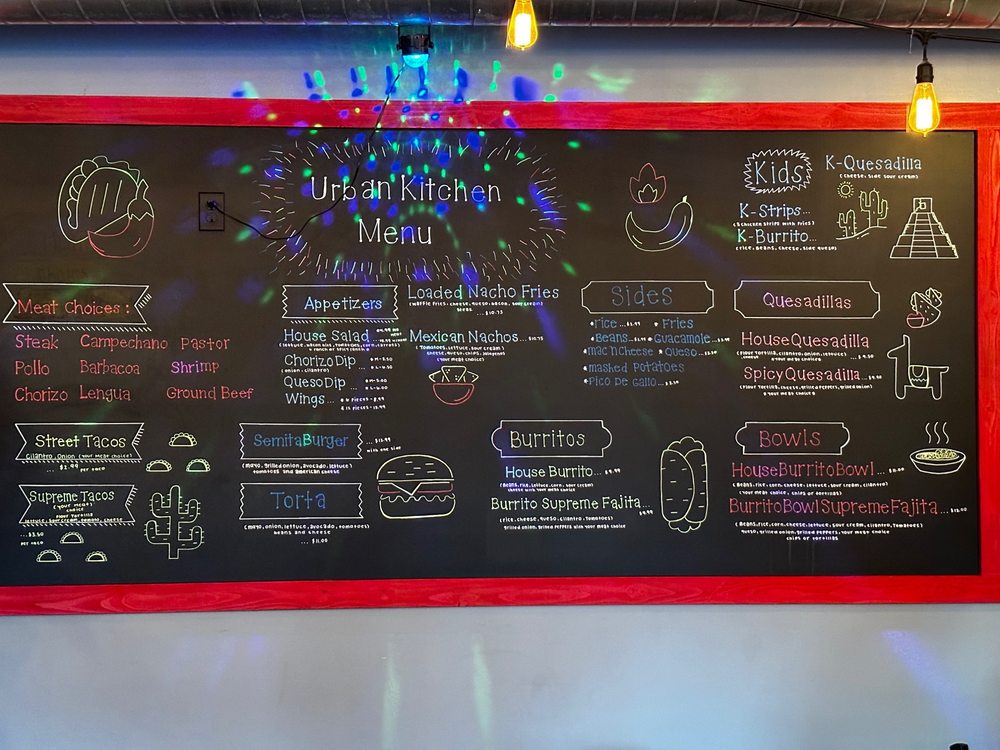 Urban Kitchen
Menu
Kids
K-Quesadilla
(cheese, side sour cream)
K-Strips...
(3 chicken strips with fries)
K-Burrito...
(rice, beans, cheese, side queso)
Meat Choices:
Steak Campechano Pastor
Pollo Barbacoa Shrimp
Chorizo Lengua Ground Beef
Appetizers
House Salad
Chorizo Dip
(onion, cilantro)
Queso Dip
Wings...
Loaded Nacho Fries
(waffle fries, cheese, queso, bacon, sour cream)
... $10.75
Mexican Nachos... $10.75
(Tomatoes, lettuce, sour cream)
cheese, queso, chips, jalapenos
(your meat choice)
Sides
rice... Fries
Beans... Guacamole
mac n cheese Queso...
mashed Potatoes
Pico De gallo...
Quesadillas
House Quesadilla
(flour Tortilla, cilantro, onion, lettuce)
Spicy Quesadilla...
(flour Tortilla, cheese, grilled peppers, grilled onion)
& your meat choice
Street Tacos
cilantro, Onion (your meat choice)
... $2.99 per taco
Supreme Tacos
(your meat)
choice
flour Tortilla
lettuce, sour cream, tomato, cheese
... $3.50
per taco
Semita Burger
... $12.99
with one side
(mayo, grilled onion, avocado, lettuce)
tomatoes and american cheese
Torta
(mayo, onion, lettuce, avocado, tomatoes)
beans and cheese
... $11.00
Burritos
House Burrito...
(Beans, rice, corn, lettuce, sour cream)
cheese with your meat choice
Burrito Supreme Fajita...
(rice, cheese, queso, cilantro, tomatoes)
grilled onion, grilled peppers with your meat choice
Bowls
House Burrito Bowl...
(Beans, rice, corn, cheese, lettuce, sour cream, cilantro)
(your meat choice, chips or tortillas)
Burrito Bowl Supreme Fajita... $12.00
(Beans, rice, corn, cheese, lettuce, sour cream, cilantro, tomatoes)
queso, grilled onion, grilled peppers, your meat choice
chips or tortillas